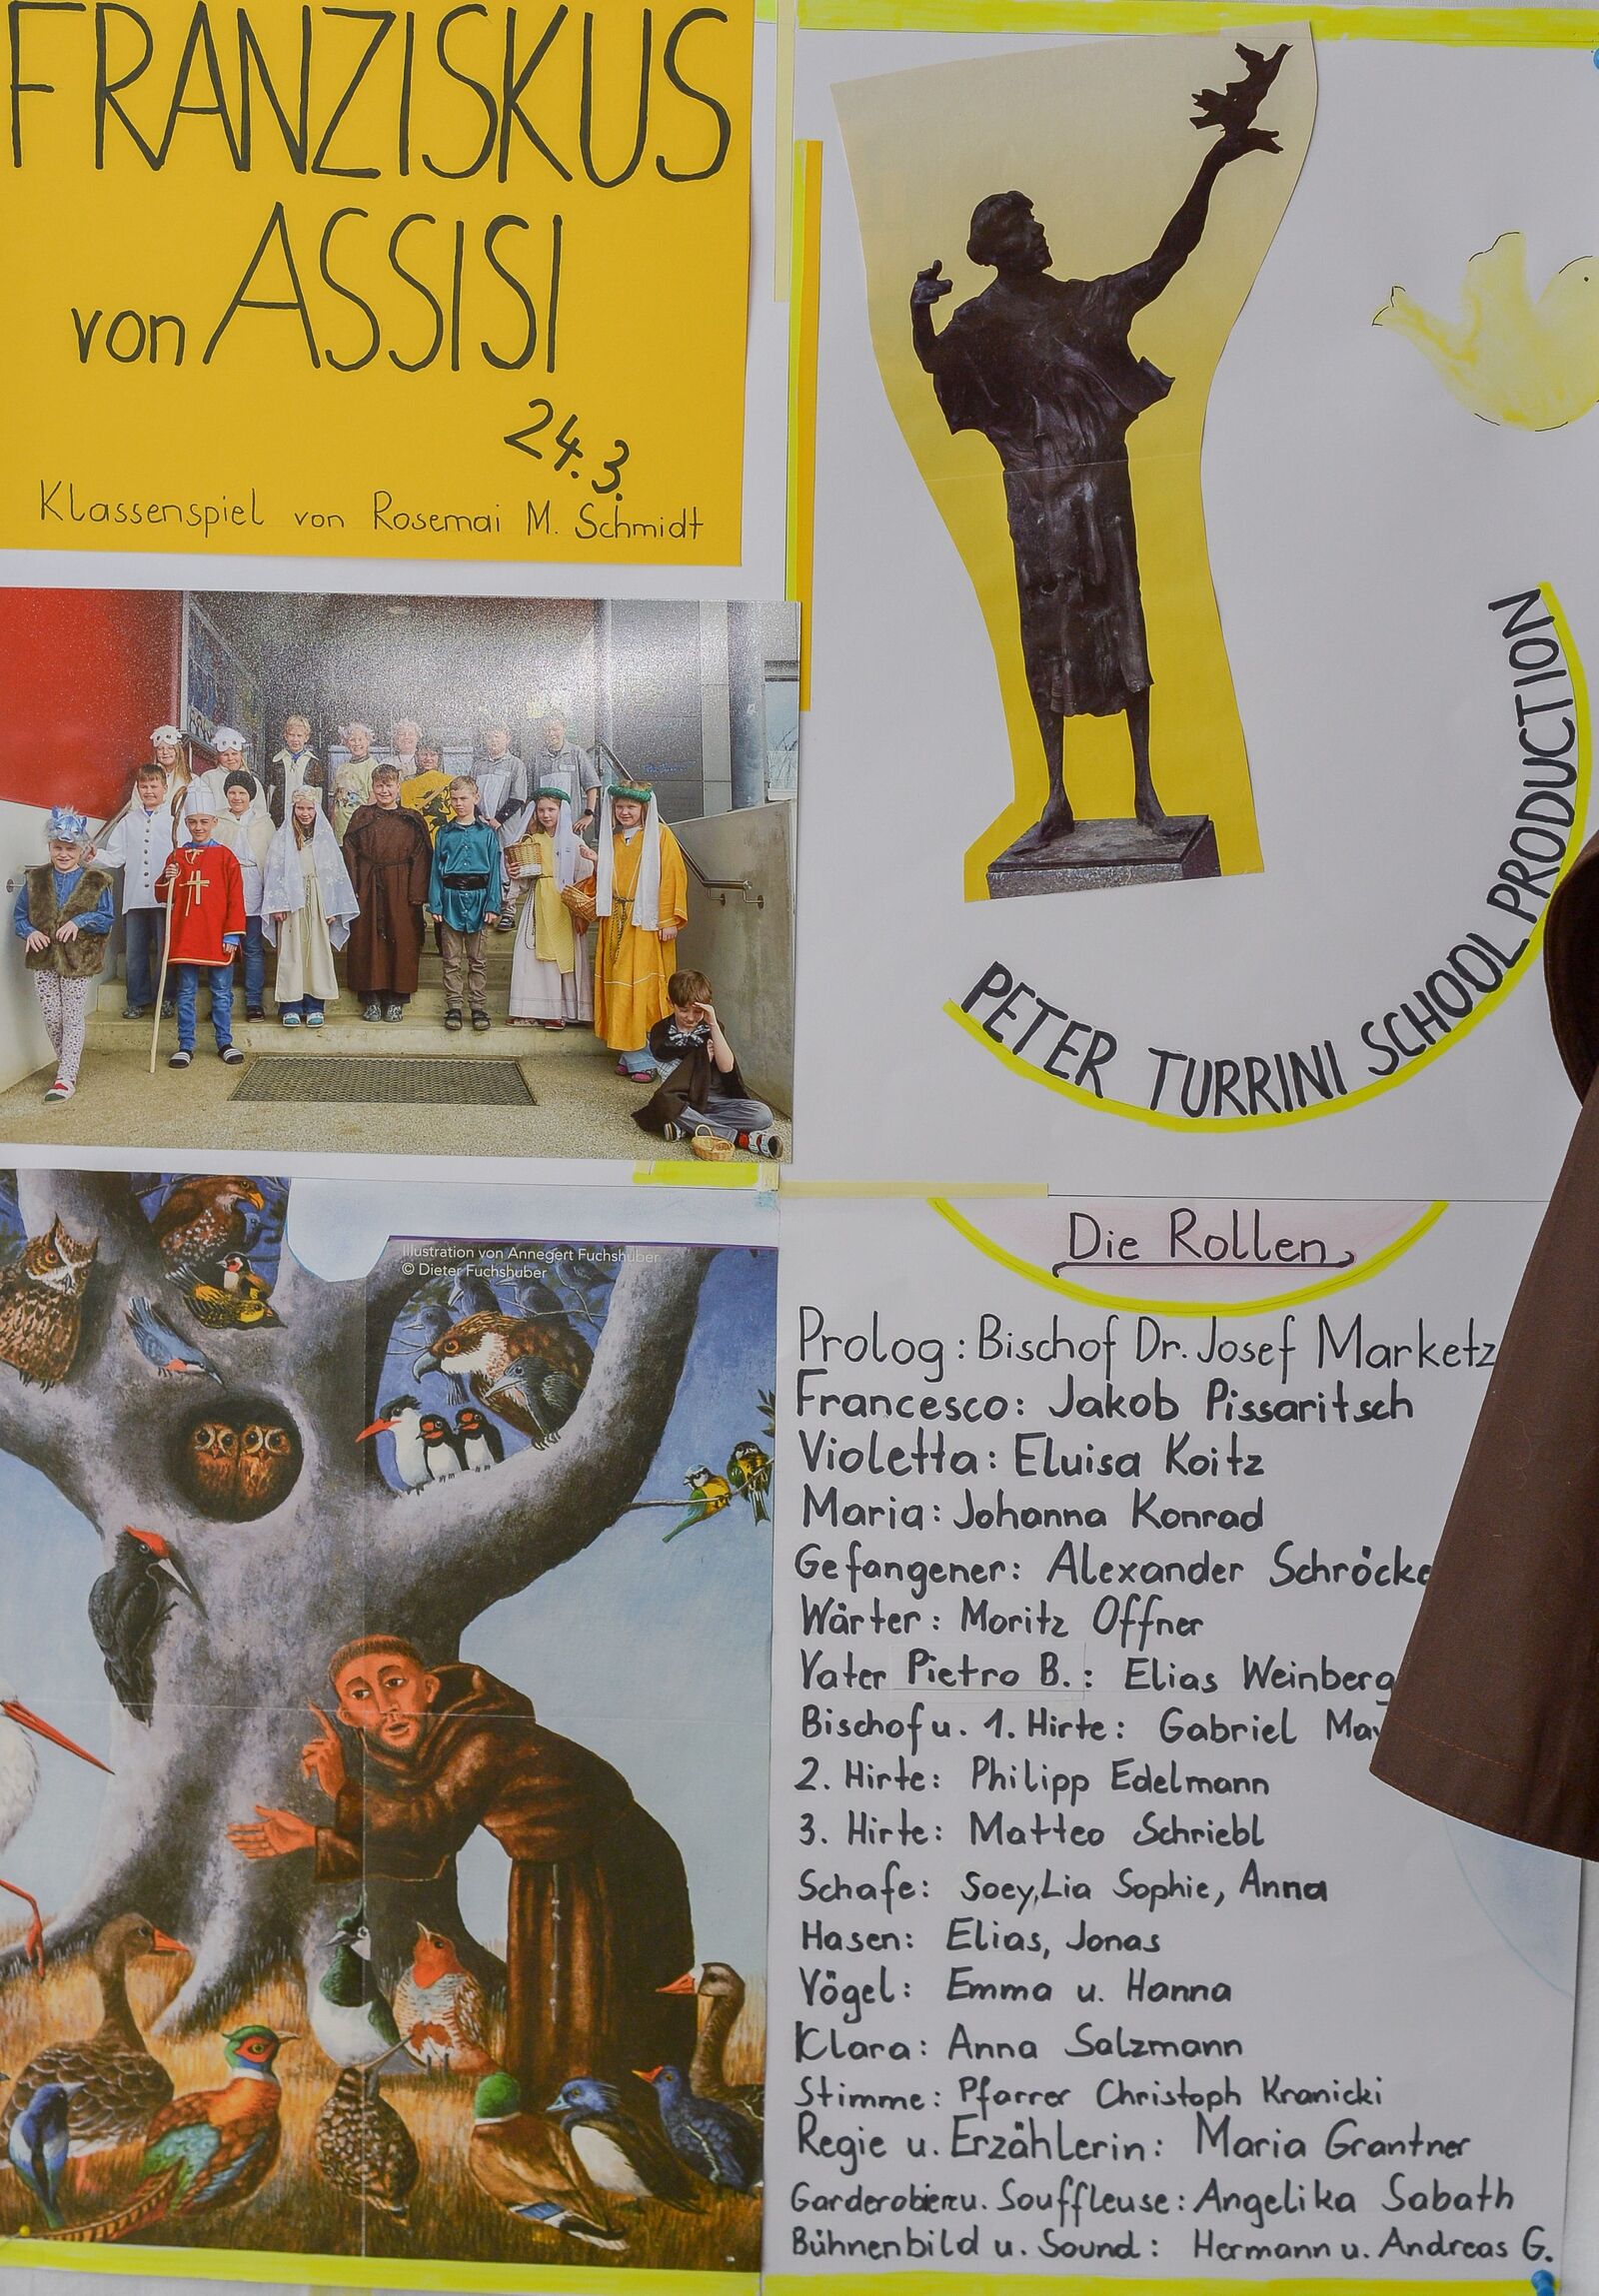 FRANZISKUS
von ASSISI
24.3.
Klassenspiel von Rosemai M. Schmidt
PETER TURRINI SCHOOL PRODUCTION
Illustration von Annegert Fuchshuber
© Dieter Fuchshuber
Die Rollen
Prolog: Bischof Dr. Josef Marketz
Francesco: Jakob Pissaritsch
Violetta: Eluisa Koitz
Maria: Johanna Konrad
Gefangener: Alexander
Wärter: Moritz Offner
Vater Pietro B.: Elias
Bischof u. 1. Hirte: Gabriel
2. Hirte: Philipp Edelmann
3. Hirte: Matteo Schriebl
Schafe: Soey, Lia Sophie, Anna
Hasen: Elias, Jonas
Vögel: Emma u. Hanna
Clara: Anna Salzmann
Stimme: Pfarrer Christoph Kranicki
Regie u. Erzählerin: Maria Grantner
u. Souffleuse: Angelika Sabath
Bühnenbild u. Sound: Hermann u. Andreas G.